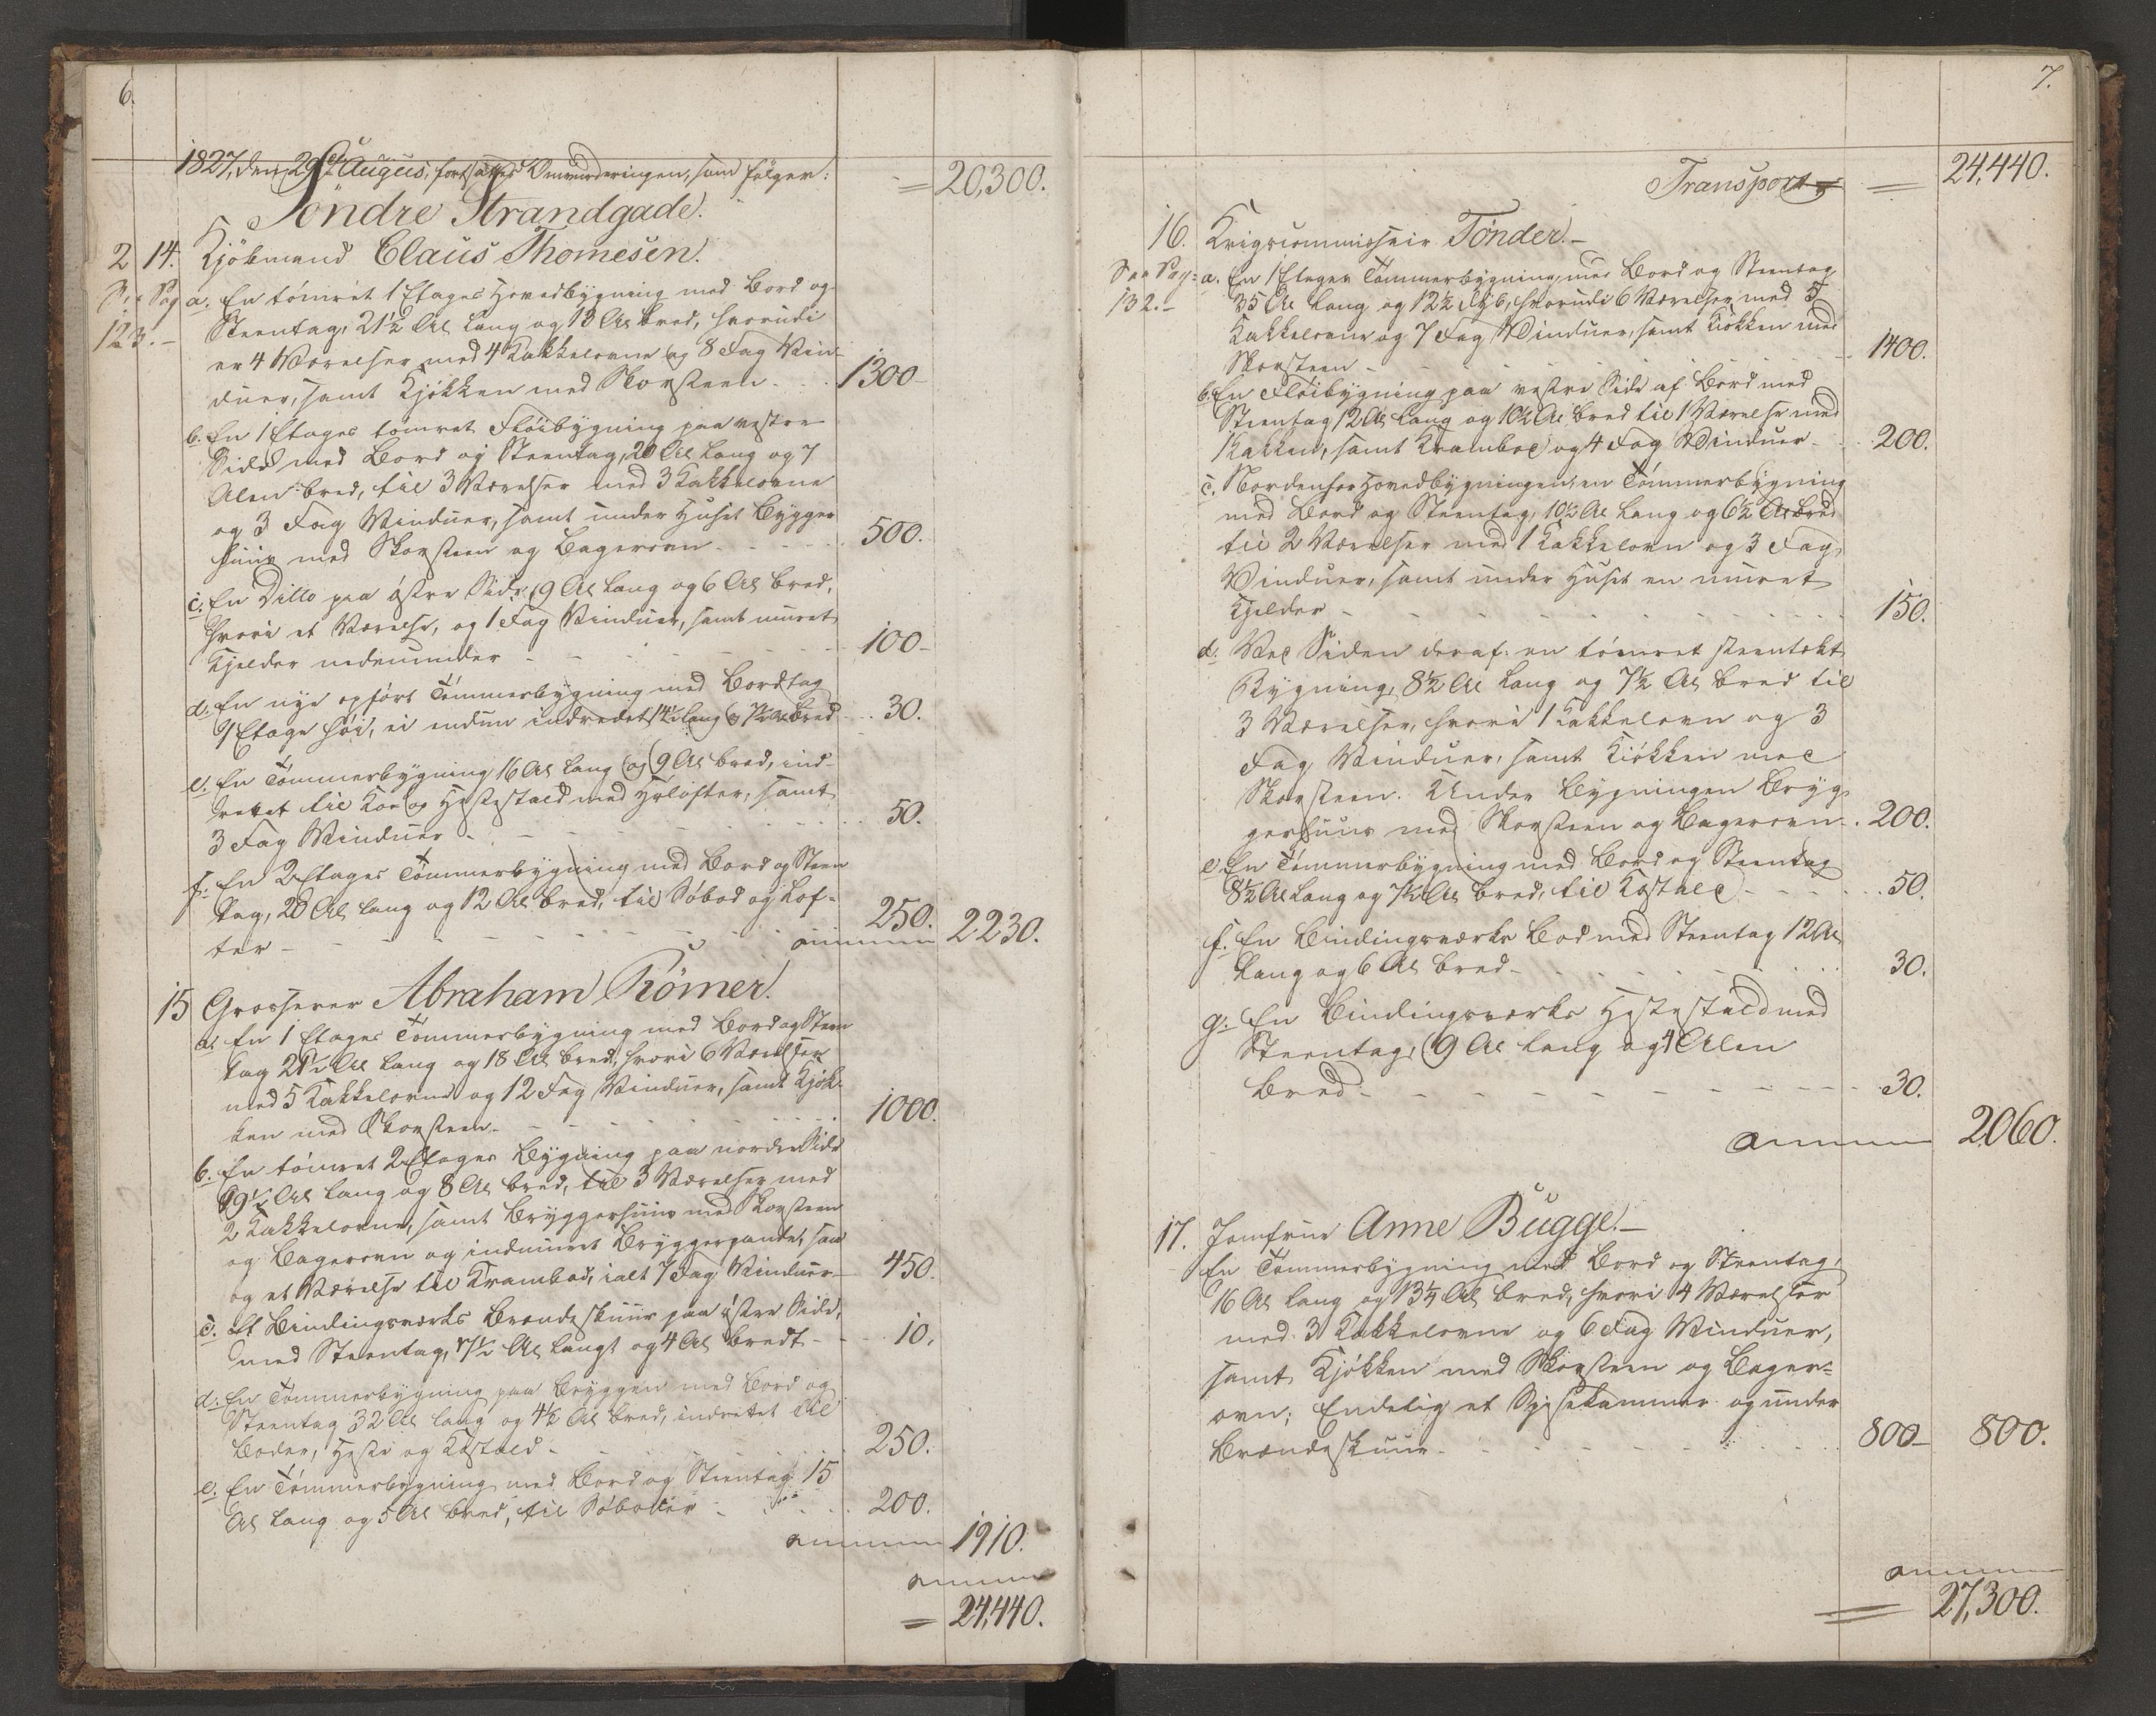 6.
1827, den 29de August, fortsattes Omvurderingen, som følger:
= 20,300.
Søndre Strandgade.
2 14. Kjøbmand Claus Thomesen.
See Pag 123.-
a. En tømret 1 Etages Hovedbygning med Bord og
Steentag, 21½ Al lang og 13 Al bred, hvorudi
er 4 Værelser med 4 Kakkelovne og 8 Fag Vin-
duer, samt Kjøkken med Skorsteen - 1300-
b. En 1 Etages tømret Fløibygning paa vestre
Side med Bord og Steentag, 20 Al lang og 7
Alen bred, til 3 Værelser med 3 Kakkelovne
og 3 Fag Vinduer, samt under Huset Brygger
huus med Skorsteen og Bagerovn - 500.
c. En Ditto paa østre Side, 9 Al lang og 6 Al bred,
hvori et Værelse, og 1 Fag Vinduer, samt muret
Kjelder nedenunder - 100-
d. En nye opført Tømmerbygning med Bordtag
1 Etage høi, ei endnu indredet 14½ lang og 7½ Al bred - 30.
e. En Tømmerbygning 16 Al lang og 9 Al bred, ind-
rettet til Koe og Hestestald med Høløfter, samt
3 Fag Vinduer - 50.
f. En 2 Etages Tømmerbygning med Bord og Steen
tag, 20 Al lang og 12 Al bred, til Søbod og Lof-
ter - 250. 2230.
15 Grosserer Abraham Römer.
a. En 1 Etages Tømmerbygning med Bord og Steen
tag 21½ Al lang og 18 Al bred, hvori 6 Værelser
med 5 Kakkelovne og 12 Fag Vinduer, samt Kjøk-
ken med Skorsteen - 1000.
b. En tømret 2 Etages Bygning paa nordre Side
19½ Al lang og 8 Al bred, til 3 Værelser med
2 Kakkelovne, samt Bryggerhuus med Skorsteen
og Bagerovn og indmuret Bryggerpande, samt
og et Værelse til Krambod, ialt 7 Fag Vinduer - 450.
c. Et Bindingsværks Brændeskuur paa østre Side,
med Steentag, 7½ Al langt og 4 Al bredt - 10.
d. En Tømmerbygning paa Bryggen med Bord og
Steentag 32 Al lang og 4½ Al bred, indrettet til
Boder, Heste og Kostald - 250.
e. En Tømmerbygning med Bord og Steentag 15
Al lang og 5 Al bred, til Søboder - 200.
1910.
= 24,440.
7.
Transport = 24,440.
16. Krigscommissair Tønder.-
See Pag: 132.-
a. En 1 Etages Tømmerbygning med Bord og Steentag
35 Al lang og 12½ dyb, hvorudi 6 Værelser med 5
Kakkelovne og 7 Fag Vinduer, samt Kiøkken med
Skorsteen - 1400.
b. En Fløibygning paa vestre Side af Bord med
Steentag 12 Al lang og 10½ Al bred til 1 Værelse med
1 Kakkelo, samt Krambod og 4 Fag Vinduer - 200.
c. Nordenfor Hovedbygningen en Tømmerbygning
med Bord og Steentag, 10½ Al lang og 6½ Al bred
til 2 Værelser med 1 Kakkelovn og 3 Fag
Vinduer, samt under Huset en muret
Kjelder - 150.
d. Ved Siden deraf: en tømret steentækt
Bygning, 8½ Al lang og 7½ Al bred til
3 Værelser, hvori 1 Kakkelovn og 3
Fag Vinduer, samt Kiøkken med
Skorsteen. Under Bygningen Bryg-
gerhuus med Skorsteen og Bagerovn - 200.
e. En Tømmerbygning med Bord og Steentag
8½ Al lang og 7½ Al bred, til Kostald - 50.
f. En Bindingsværks Bod med Steentag 12 Al
lang og 6 Al bred - 30.
g. En Bindingsværks Hestestald med
Steentag, 9 Al lang og 4 Alen
bred - 30.
2060.
17. Jomfrue Anne Bugge.-
En Tømmerbygning med Bord og Steentag,
16 Al lang og 13¼ Al bred, hvori 4 Værelser
med 3 Kakkelovne og 6 Fag Vinduer,
samt Kjøkken med Skorsteen og Bager-
ovn; Endelig et Spisekammer og under
Brændeskuur - 800- 800.
= 27,300.